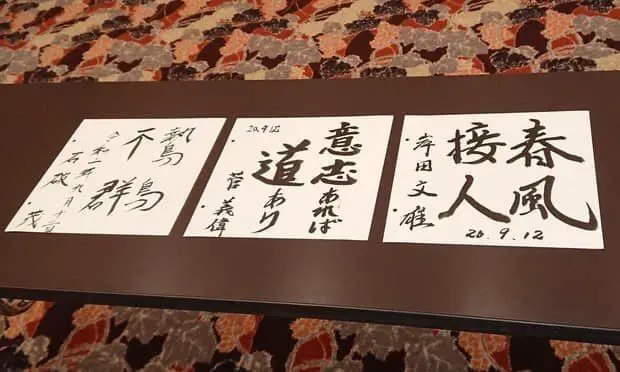 春風
接人
岸田文雄
20.9.12
意志あれば
道あり
菅 義偉
20.9.12
鷙鳥
不群
令和二年九月十二日
石破 茂